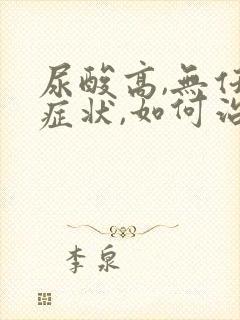 尿酸高,無任
症状,如何治
李泉